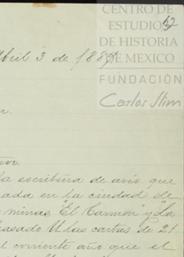 CENTRO DE
ESTUDIOS
DE HISTORIA
DE MEXICO
FUNDACIÓN
Carlos Slim
62
Abril 3 de 188
la escritura de avío que
ada en la ciudad de
minas "El Carmen" y La
pasado U las cartas de 21
l corriente año que el